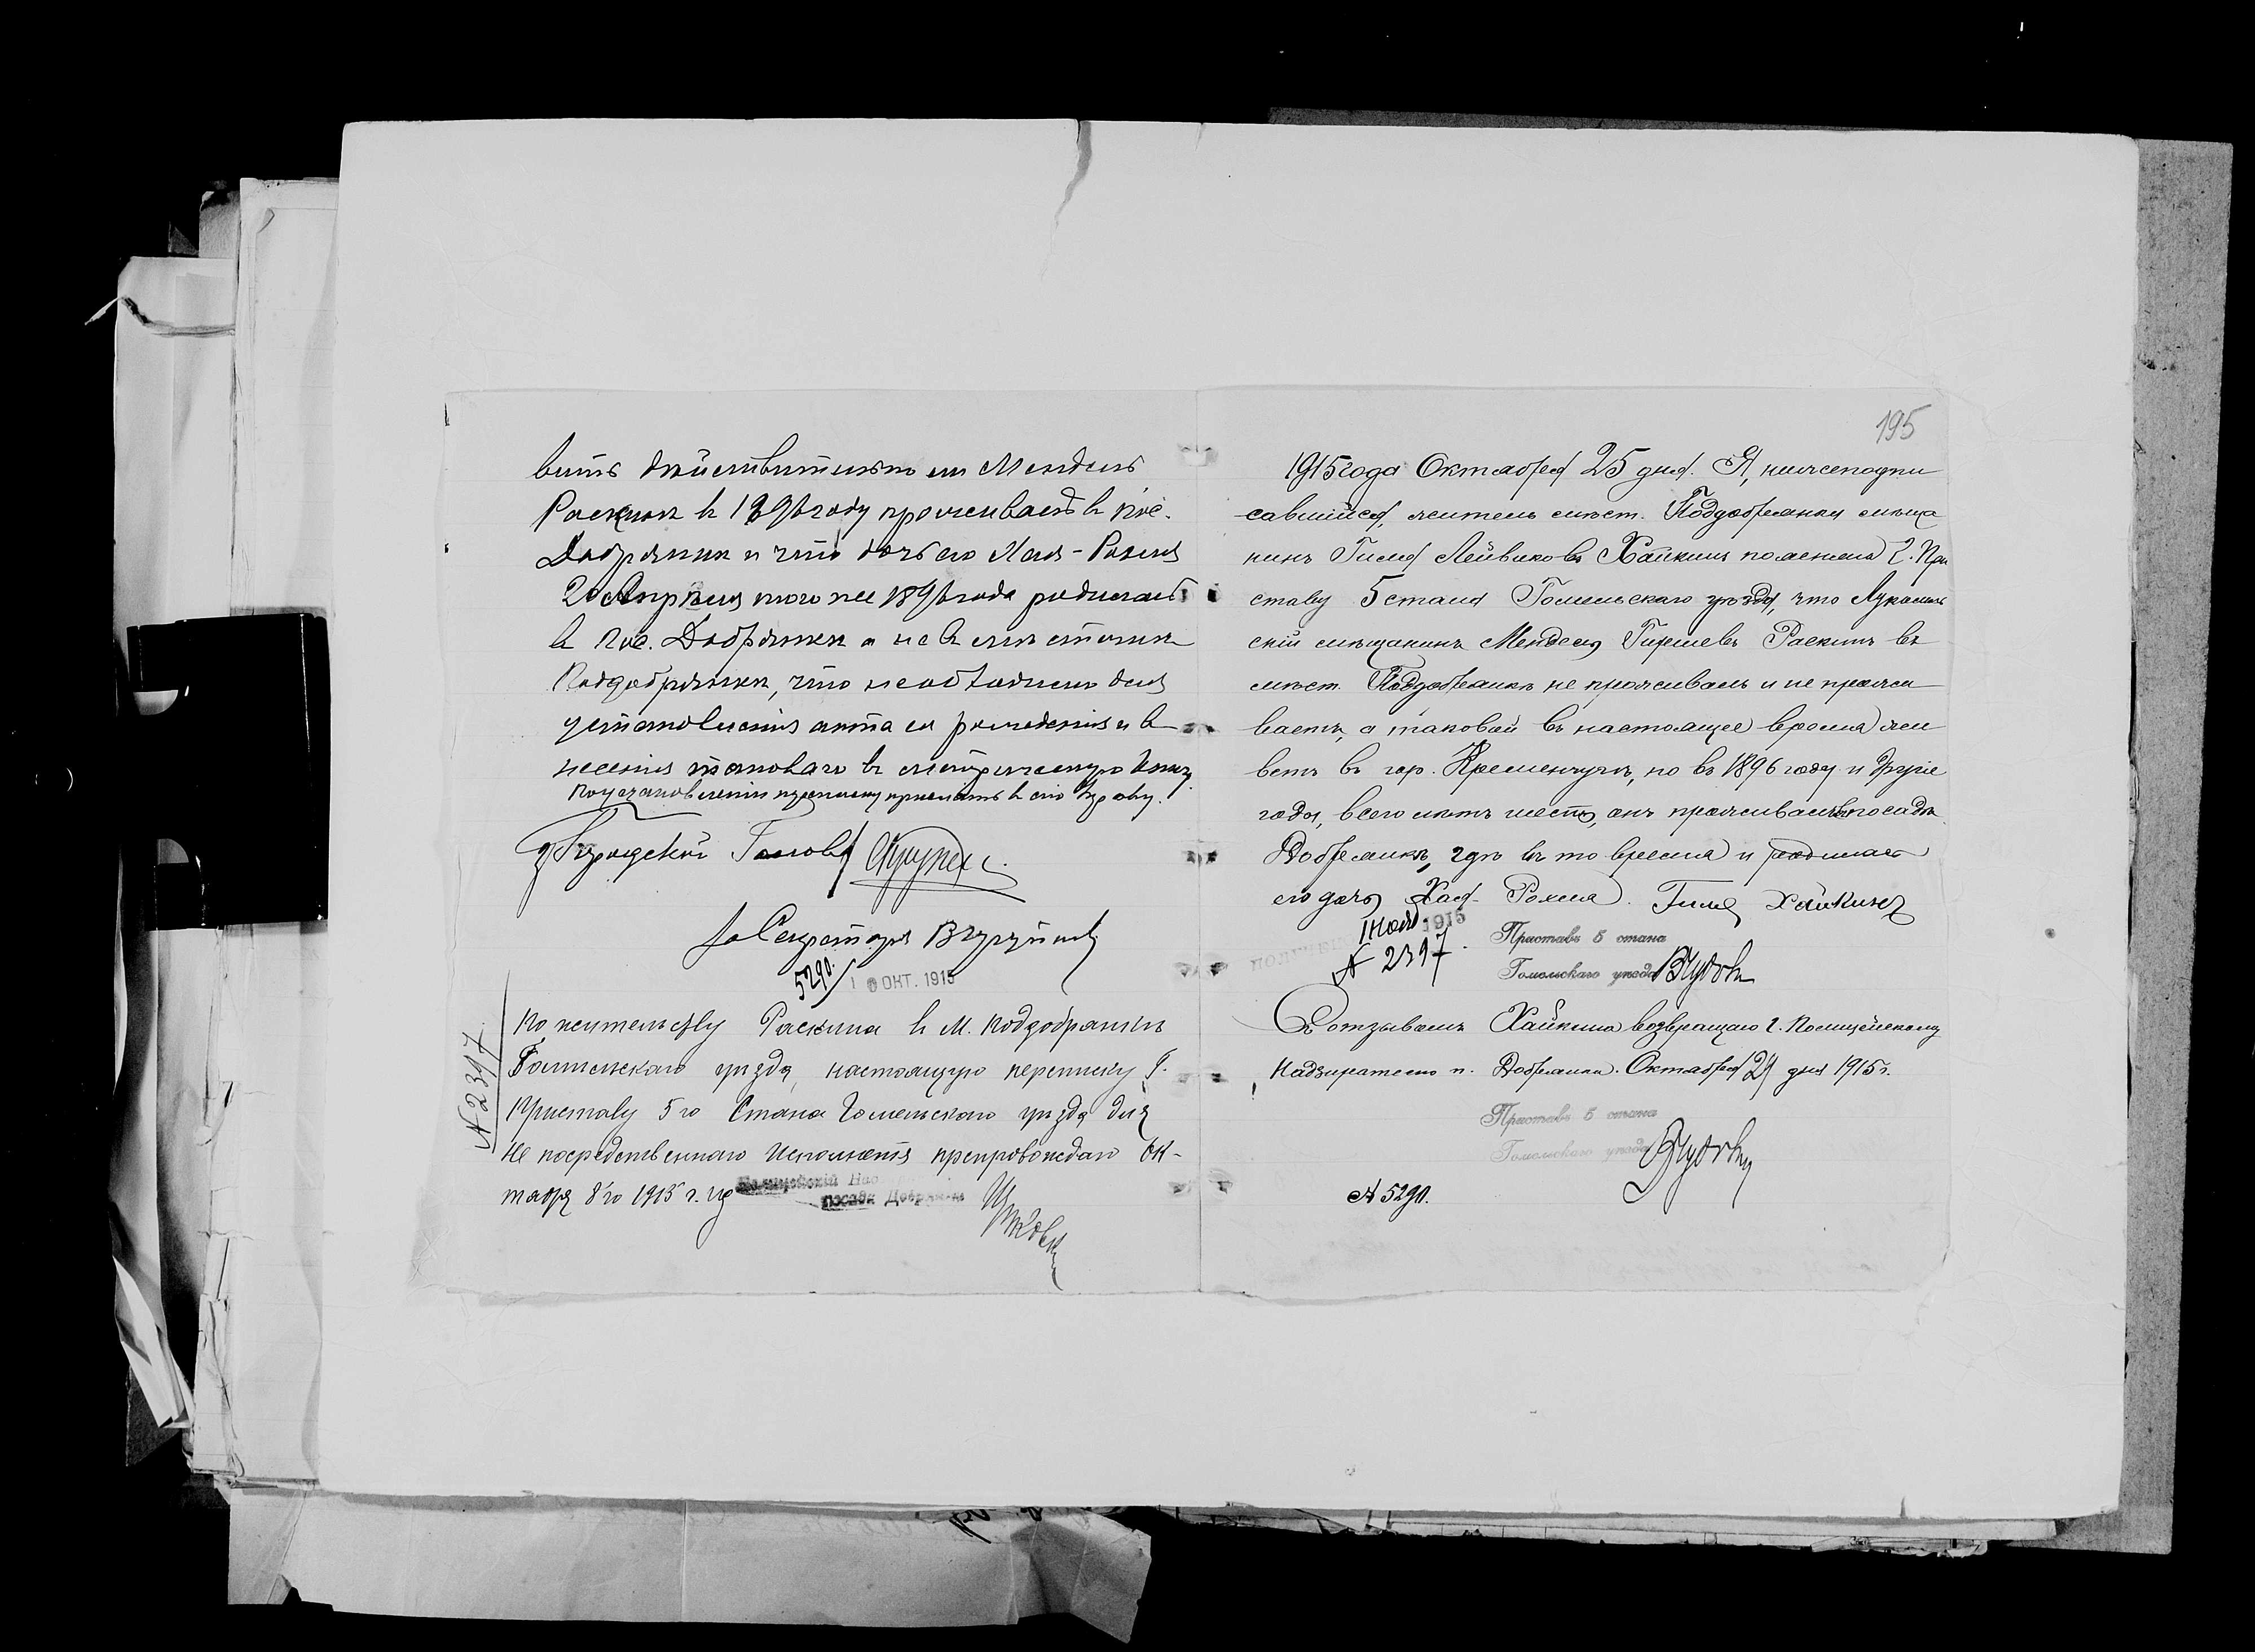 вить действительно ли Мендель
Раскин в 1896 году проживал в пос.
Добрянке и что дочь его Хая-Рохля
20 Апреля того же 1896 года родилась
в пос. Добрянке а не в местечке
Поддобрянке, что необходимо для
установления акта ея рождения и в
несения такового в метрическую книгу.
По установлении переписку прислать в сию Управу.
Городской Голова
За Секретаря
5290
1 0 ОКТ. 1915
№ 2397
По жительству Раскина в м. Поддобрянке
Гомельскаго уезда, настоящую переписку Г.
Приставу 5го Стана Гомельскаго уезда для
Не посредственнаго Исполнения препровождаю Ок-
тября 8го 1915 г.
Полицейскій Над
посада Добрянки
195
1915 года Октября 25 дня. Я, нижеподпи
савшийся, житель мѣст. Поддобрянки мѣща
нинъ Гиля Лейвиковъ Хайкинъ показалъ Г. При
ставу 5 стана Гомельскаго уѣзда, что Лукомль
скій мѣщанинъ Мендель Гиршевъ Раскинъ въ
мѣст. Поддобрянкѣ не проживалъ и не прожи
ваетъ, а таковой въ настоящее время жи
ветъ въ гор. Кременчугѣ, но въ 1896 году и другіе
года, всего лѣтъ шесть, онъ проживалъ въ посадѣ
Добрянкѣ, гдѣ въ то время и родилась
его дочь Хая-Рохля. Гиля Хайкинъ
1 Ноя 1915
№ 2397
Приставъ 5 стана
Гомельскаго уѣзда
Съ отзывомъ Хайкина возвращаю Г. Полицейскому
Надзирателю п. Добрянки. Октября 29 дня 1915 г.
Приставъ 5 стана
Гомельскаго уѣзда
№ 5290.